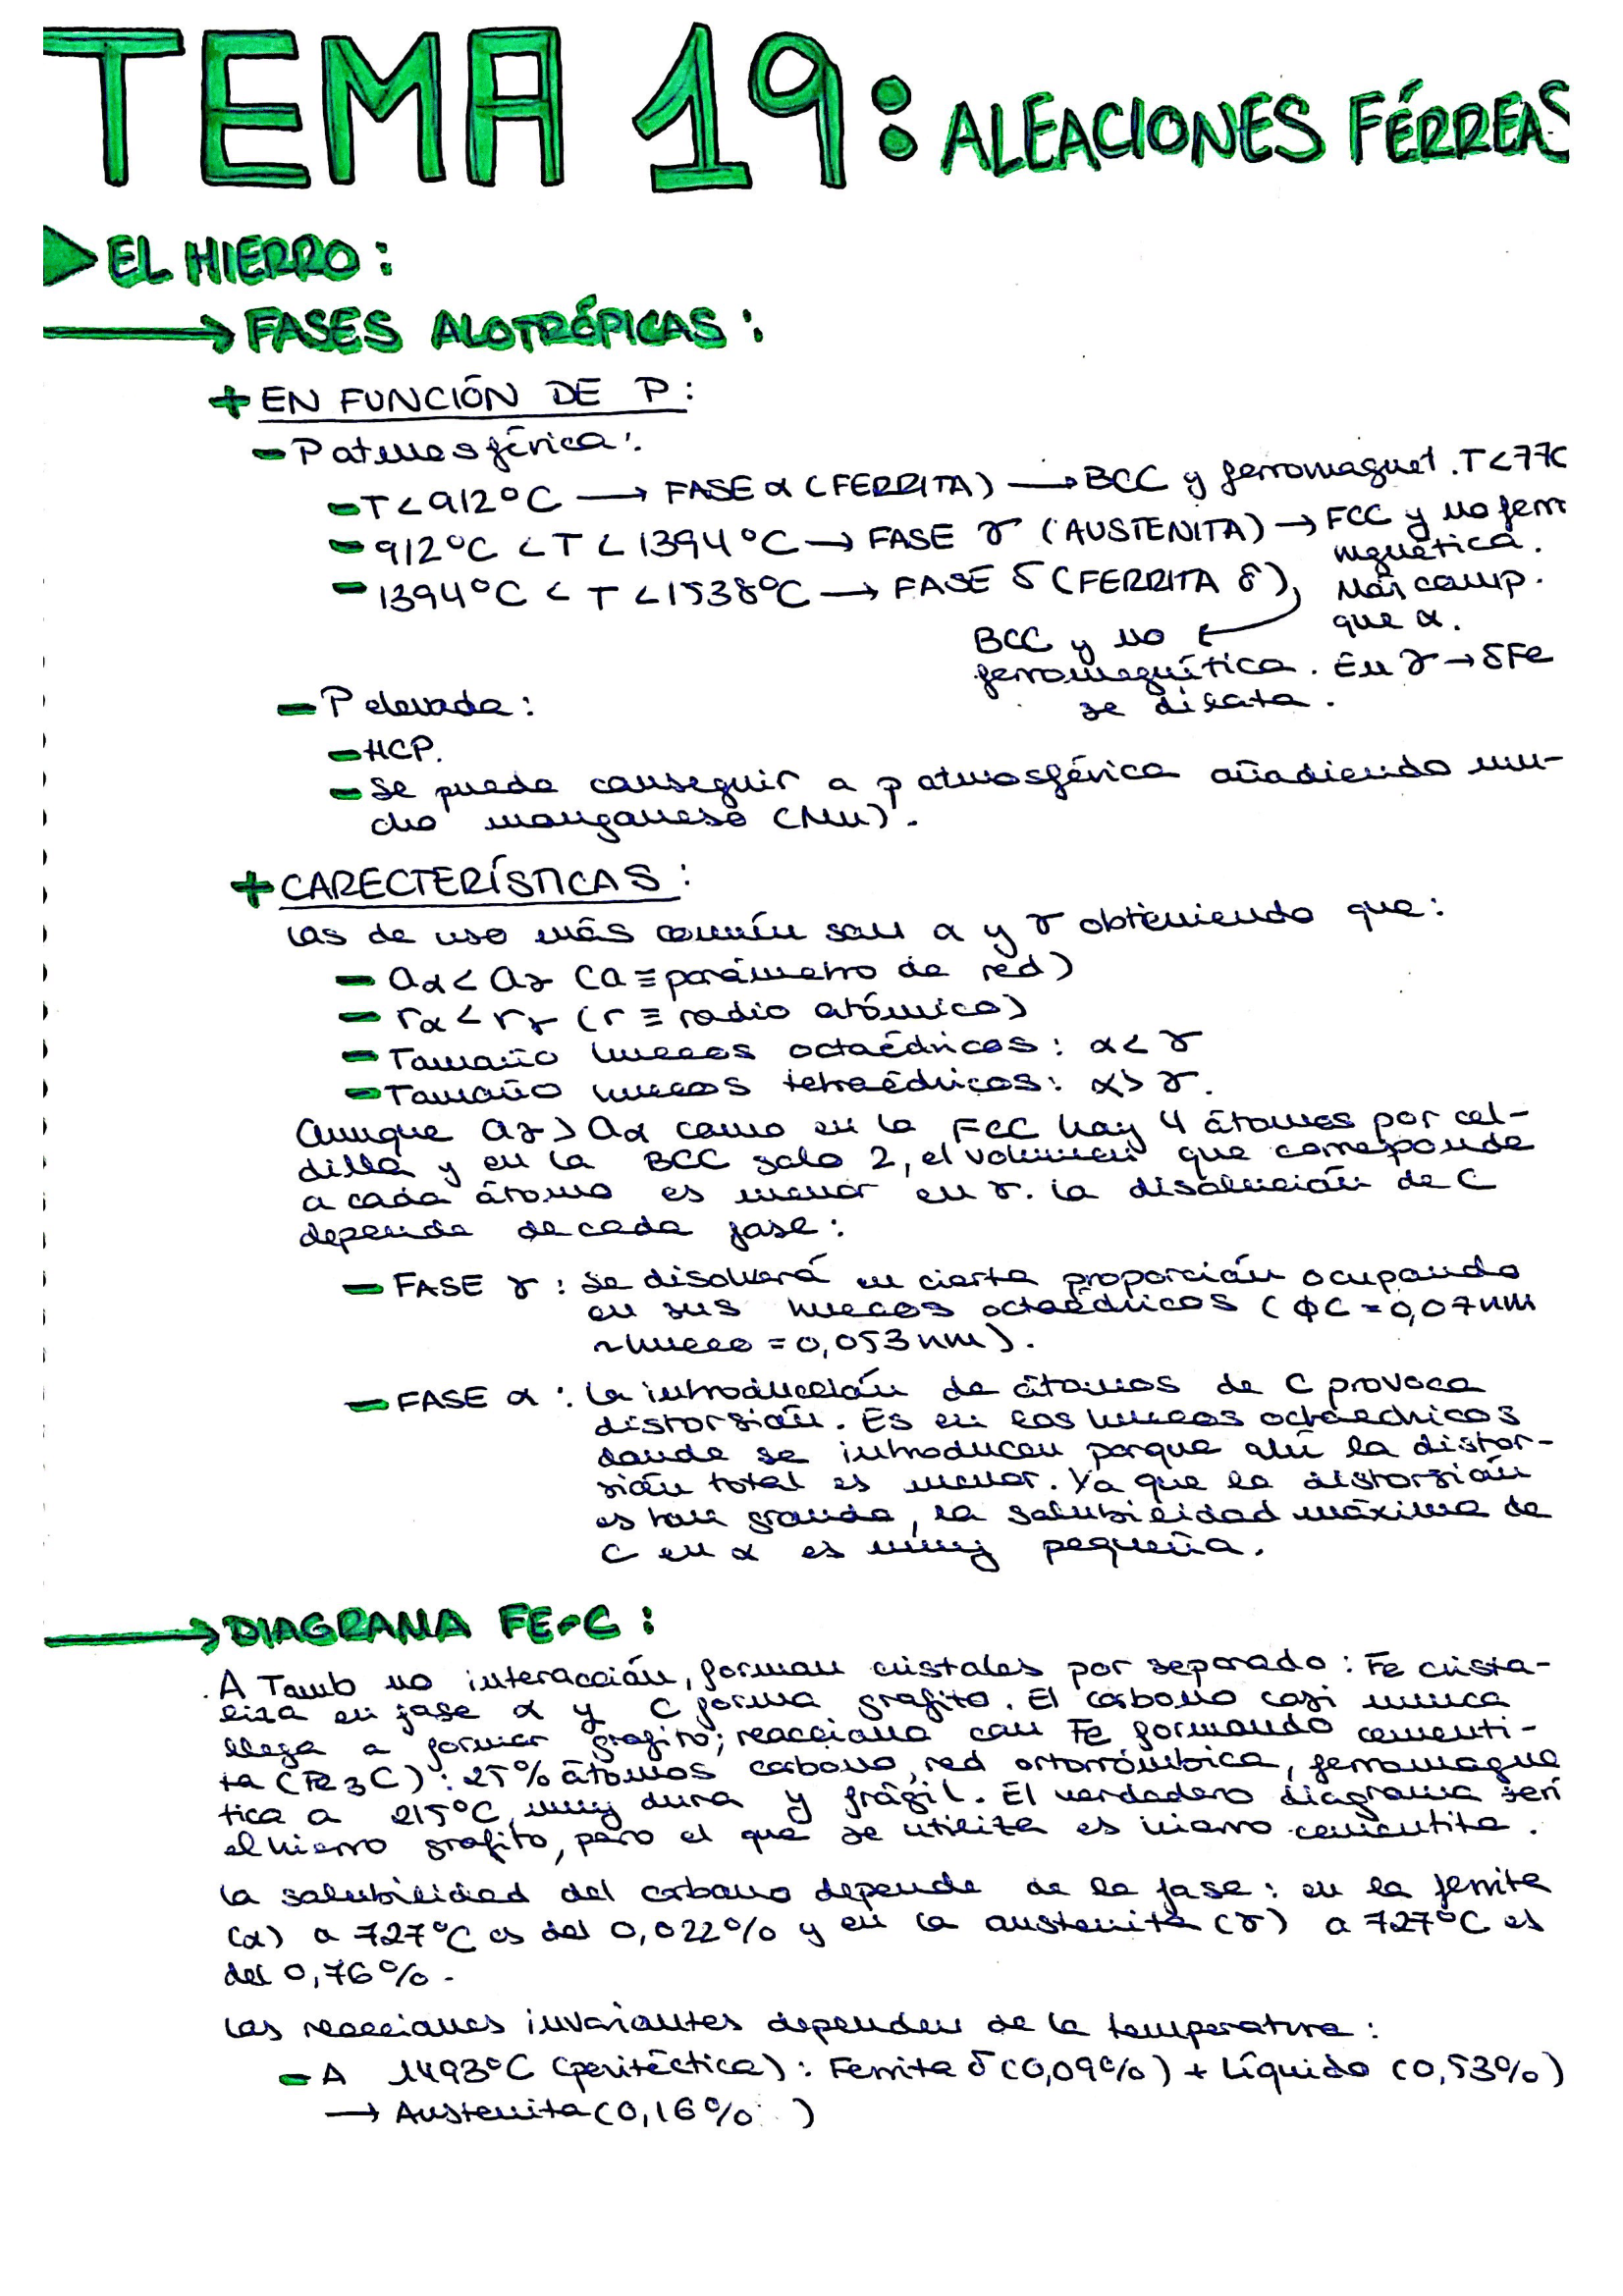 TEMA 19: ALEACIONES FÉRREAS
EL HIERRO:
→ FASES ALOTRÓPICAS:
+ EN FUNCIÓN DE P:
- Patmosférica:
- T < 912°C → FASE α (FERRITA) → BCC y ferromagnet. T<77
- 912°C < T < 1394°C → FASE γ (AUSTENITA) → FCC y no ferro
mgnética.
- 1394°C < T < 1538°C → FASE δ (FERRITA δ),
Más comp.
que α.
BCC y no
ferromagnítica. En γ → δFe
se dilata.
- P elevada:
- HCP.
- Se puede conseguir a p atmosférica añadiendo mu-
cho manganeso (Mn).
+ CARECTERÍSTICAS:
Las de uso más común son α y γ obteniendo que:
- aα < aγ (a ≡ parámetro de red)
- rα < rγ (r ≡ radio atómico)
- Tamaño huecos octaédricos: α < γ
- Tamaño huecos tetraédricos: α > γ.
Aunque aγ > aα como en la FCC hay 4 átomos por cel-
dilla y en la BCC solo 2, el volumen que corresponde
a cada átomo es menor en γ. La disolución de C
depende de cada fase:
- FASE γ: Se disolverá en cierta proporción ocupando
en sus huecos octaédricos (ϕC = 0,07nm
~hueco = 0,053nm).
- FASE α: La introducción de átomos de C provoca
distorsión. Es en los huecos octaédricos
donde se introducen porque ahí la distor-
sión total es menor. Ya que la distorsión
es tan grande, la solubilidad máxima de
C en α es muy pequeña.
→ DIAGRAMA FE-C:
A Tamb no interacción, forman cristales por separado: Fe crista-
liza en fase α y C forma grafito. El carbono casi nunca
llega a formar grafito; reacciona con Fe formando cementi-
ta (Fe3C): 25% átomos carbono, red ortorrómbica, ferromagne
tica a 215°C, muy dura y frágil. El verdadero diagrama serí
el hierro grafito, pero el que se utiliza es hierro-cementita.
La solubilidad del carbono depende de la fase: en la ferrita
(α) a 727°C es del 0,022% y en la austenita (γ) a 727°C es
del 0,76%.
Las reacciones invariantes dependen de la temperatura:
- A 1493°C (peritéctica): Ferrita δ (0,09%) + Líquido (0,53%)
→ Austenita (0,16%)